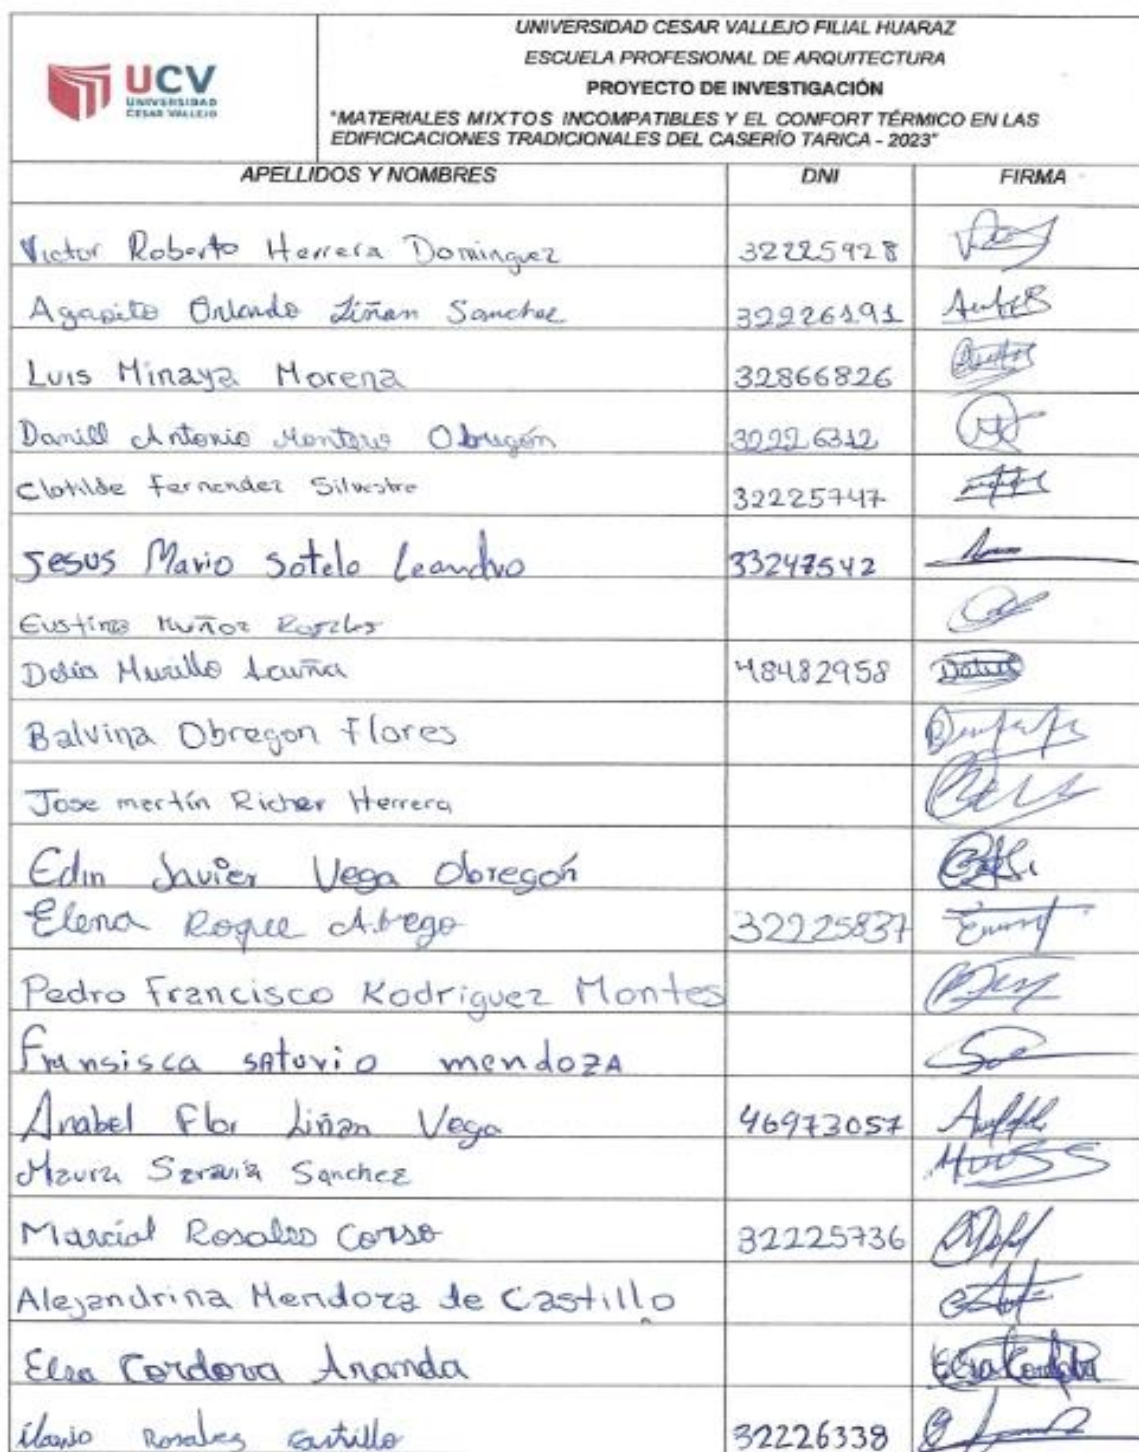 UCV
UNIVERSIDAD
CESAR VALLEJO
UNIVERSIDAD CESAR VALLEJO FILIAL HUARAZ
ESCUELA PROFESIONAL DE ARQUITECTURA
PROYECTO DE INVESTIGACIÓN
"MATERIALES MIXTOS INCOMPATIBLES Y EL CONFORT TÉRMICO EN LAS
EDIFICICACIONES TRADICIONALES DEL CASERÍO TARICA - 2023"
APELLIDOS Y NOMBRES DNI FIRMA
Victor Roberto Herrera Dominguez 32225928
Agapito Orlando Liñan Sanchez 32226191
Luis Minaya Morena 32866826
Danill Antonio Montoro Obregón 32226312
Clotilde Fernandez Silvestre 32225747
Jesus Mario Sotelo Leandro 33247542
Eustina Muñoz Rosales
Delia Murillo Acuña 48482958
Balvina Obregon Flores
Jose martín Richer Herrera
Edin Javier Vega Obregón
Elena Roque Abrego 32225837
Pedro Francisco Rodriguez Montes
Fransisca satuvio mendoza
Anabel Flor Liñan Vega 46973057
Maura Saravia Sanchez
Marcial Rosales Corso 32225736
Alejandrina Mendoza de Castillo
Elsa Cordova Ananda Elsa Cordova
Rosales Castillo 32226338